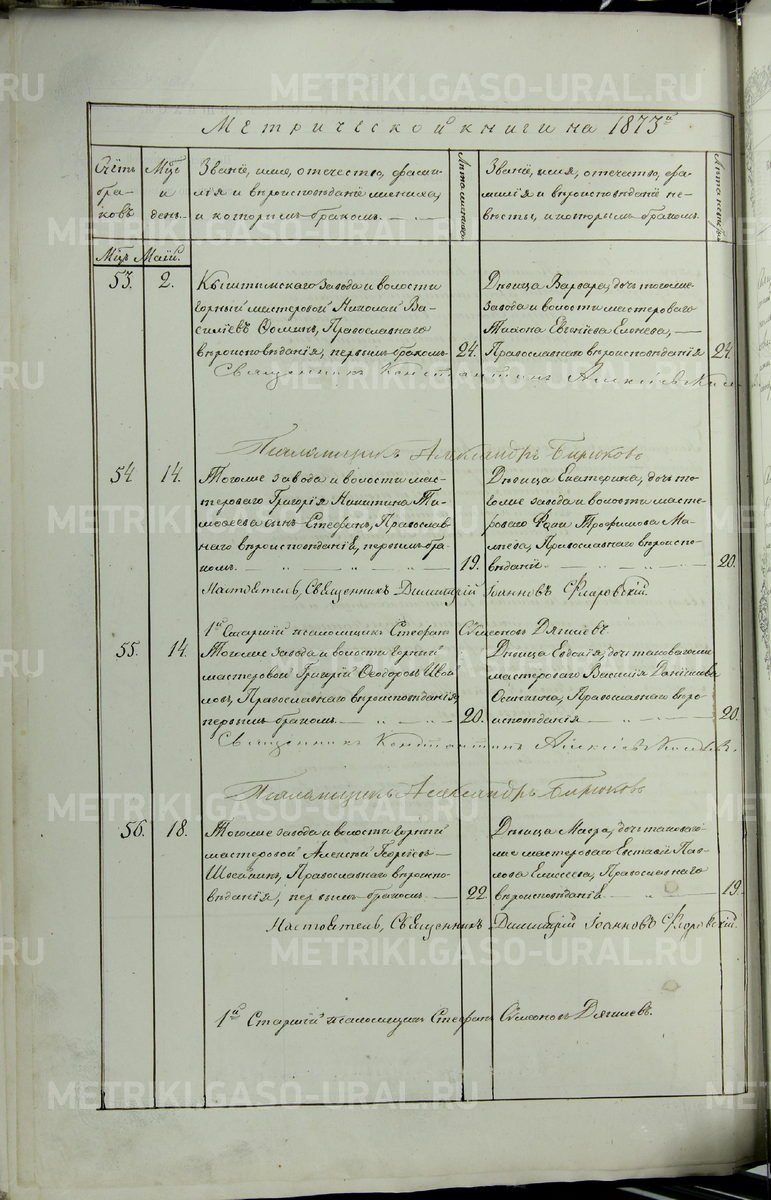 Метрической книги на 1873й
Счётъ браковъ
Мцъ и день.
Званіе, имя, отечество, фами-
лія и вѣроисповѣданіе жениха,
и которымъ бракомъ.
Лѣта жениха
Званіе, имя, отечество, фа-
милія и вѣроисповѣданіе не-
вѣсты, и которымъ бракомъ.
Лѣта невѣсты
Мцъ Маій.
53. 2.
Кыштымскаго завода и волости
горный мастеровой Николай Ва-
силіевъ Ѳоминъ, Православнаго
вѣроисповѣданія, первымъ бракомъ 24.
Дѣвица Варвара, дочь тогоже
завода и волости мастероваго
Евгеніева
Православнаго вѣроисповѣданія 24.
Священникъ Константинъ Алексіевъ
Псаломщикъ Александръ Бирюковъ
54 14.
Тогоже завода и волости мас-
тероваго Григорія Никитина Ти-
моѳеева сынъ Стефанъ, Православ-
наго вѣроисповѣданія, первымъ бра-
комъ. 19.
Дѣвица Екатерина, дочь то-
гоже завода и волости масте-
роваго Трофимова
Православнаго вѣроиспо-
вѣданія. 20.
Настоятель, Священникъ Димитрій Іоанновъ Флоровскій.
1й Старшій псаломщикъ Стефанъ Сѵмеоновъ Дягилевъ.
55. 14.
Тогоже завода и волости горный
мастеровой Григорій Ѳеодоровъ
Православнаго вѣроисповѣданія,
первымъ бракомъ. 20.
Дѣвица Евдокія, дочь таковагоже
мастероваго Василія
Православнаго вѣро-
исповѣданія 20.
Священникъ Константинъ Алексіевъ
Псаломщикъ Александръ Бирюковъ
56. 18.
Тогоже завода и волости горный
мастеровой Алексій Георгіевъ
Швейкинъ, Православнаго вѣроиспо-
вѣданія, первымъ бракомъ. 22.
Дѣвица Мавра, дочь таковаго-
же мастероваго Евстафія Пав-
лова Елисеева, Православнаго
вѣроисповѣданія. 19.
Настоятель, Священникъ Димитрій Іоанновъ Флоровскій.
1й Старшій псаломщикъ Стефанъ Сѵмеоновъ Дягилевъ.
METRIKI.GASO-URAL.RU